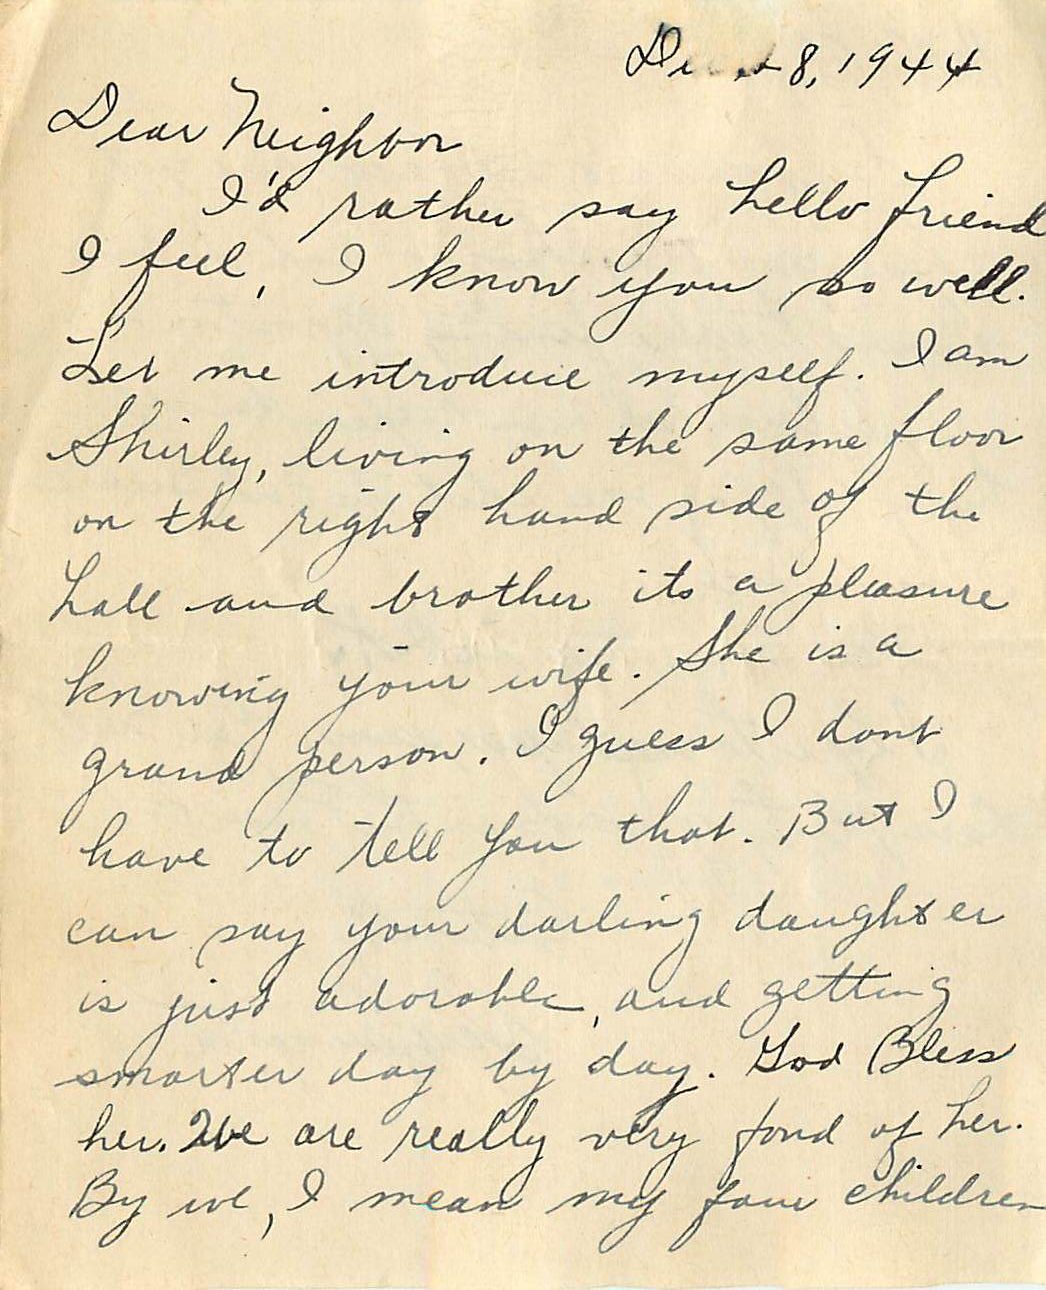 8, 1944
Dear Neighbor
I'd rather say hello friend
I feel, I know you so well.
Let me introduce myself. I am
Shirley, living on the same floor
on the right hand side of the
hall and brother its a pleasure
knowing your wife. She is a
grand person. I guess I dont
have to tell you that. But I
can say your darling daughter
is just adorable, and getting
smarter day by day. God Bless
her. We are really very fond of her.
By we, I mean my four children